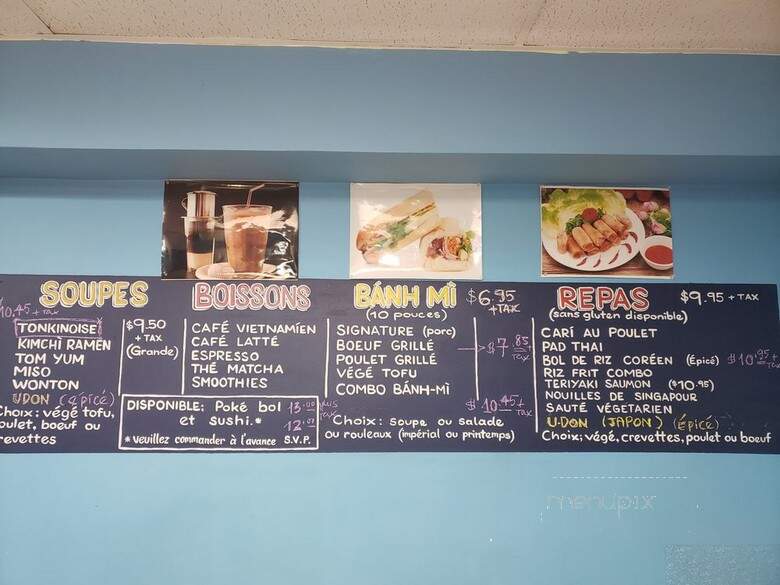 SOUPES
10.45 + TAX
TONKINOISE
KIMCHI RAMEN
TOM YUM
MISO
WONTON
UDON (épicé)
Choix: végé tofu,
poulet, boeuf ou
crevettes
$9.50
+ TAX
(Grande)
BOISSONS
CAFÉ VIETNAMIEN
CAFÉ LATTÉ
ESPRESSO
THÉ MATCHA
SMOOTHIES
DISPONIBLE: Poké bol 13.00
et sushi.* 12.00
*veuillez commander à l'avance S.V.P.
BÁNH MÌ $6.95
+TAX
(10 pouces)
SIGNATURE (porc)
BOEUF GRILLÉ
POULET GRILLÉ
VÉGÉ TOFU
$7.85+
TAX
COMBO BÁNH-MÌ
$10.45+
TAX
Choix: soupe ou salade
ou rouleaux (impérial ou printemps)
REPAS $9.95 + TAX
(sans gluten disponible)
CARÍ AU POULET
PAD THAI
BOL DE RIZ CORÉEN (Épicé) $10.95+
TAX
RIZ FRIT COMBO
TERIYAKI SAUMON ($10.95)
NOUILLES DE SINGAPOUR
SAUTÉ VÉGETARIEN
UDON (JAPON) (épicé)
Choix: végé, crevettes, poulet ou boeuf
menupix